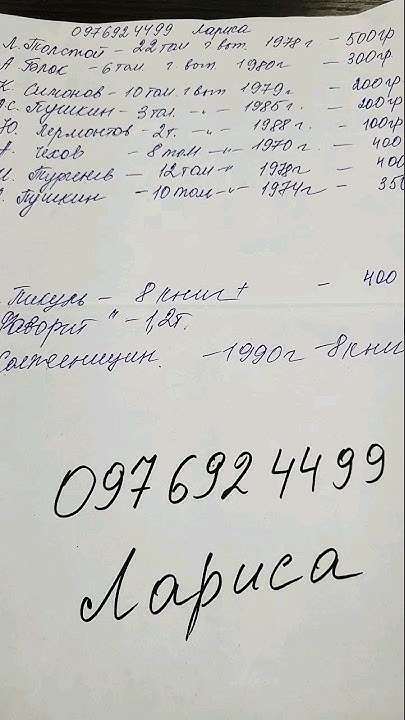 0976924499 Лариса
Л. Толстой - 22 том г вып. 1978г - 500гр
А. Блок - 6 том г вып. 1980г - 300гр
К. Симонов - 10 том г вып 1979г - 200гр
.С. Пушкин - 3 том. -"- - 1985г. - 200гр
Ю. Лермонтов - 2т. -"- - 1988г. - 100гр
А. Чехов - 8 том -"- 1970г. - 400
И. Тургенев - 12 том -"- 1978г - 400
. Пушкин - 10 том -"- 1974г - 350
Пикуль - 8 книг + - 400
Фаворит" - 1,2т.
Солженицин. - 1990г - 8 кни
0976924499
Лариса